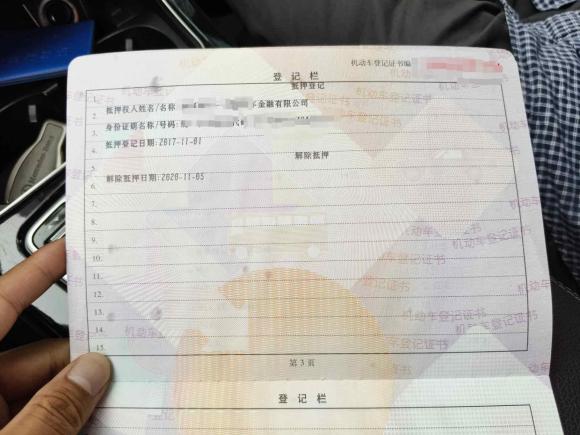 机动车登记证书编
登记栏
抵押登记
1.
2. 抵押权人姓名/名称 金融有限公司
3. 身份证明名称/号码:
4. 抵押登记日期:2017-11-01
5. 解除抵押
6. 解除抵押日期:2020-11-05
7.
8.
9.
10.
11.
12.
13.
14.
15.
第3页
登记栏
1.